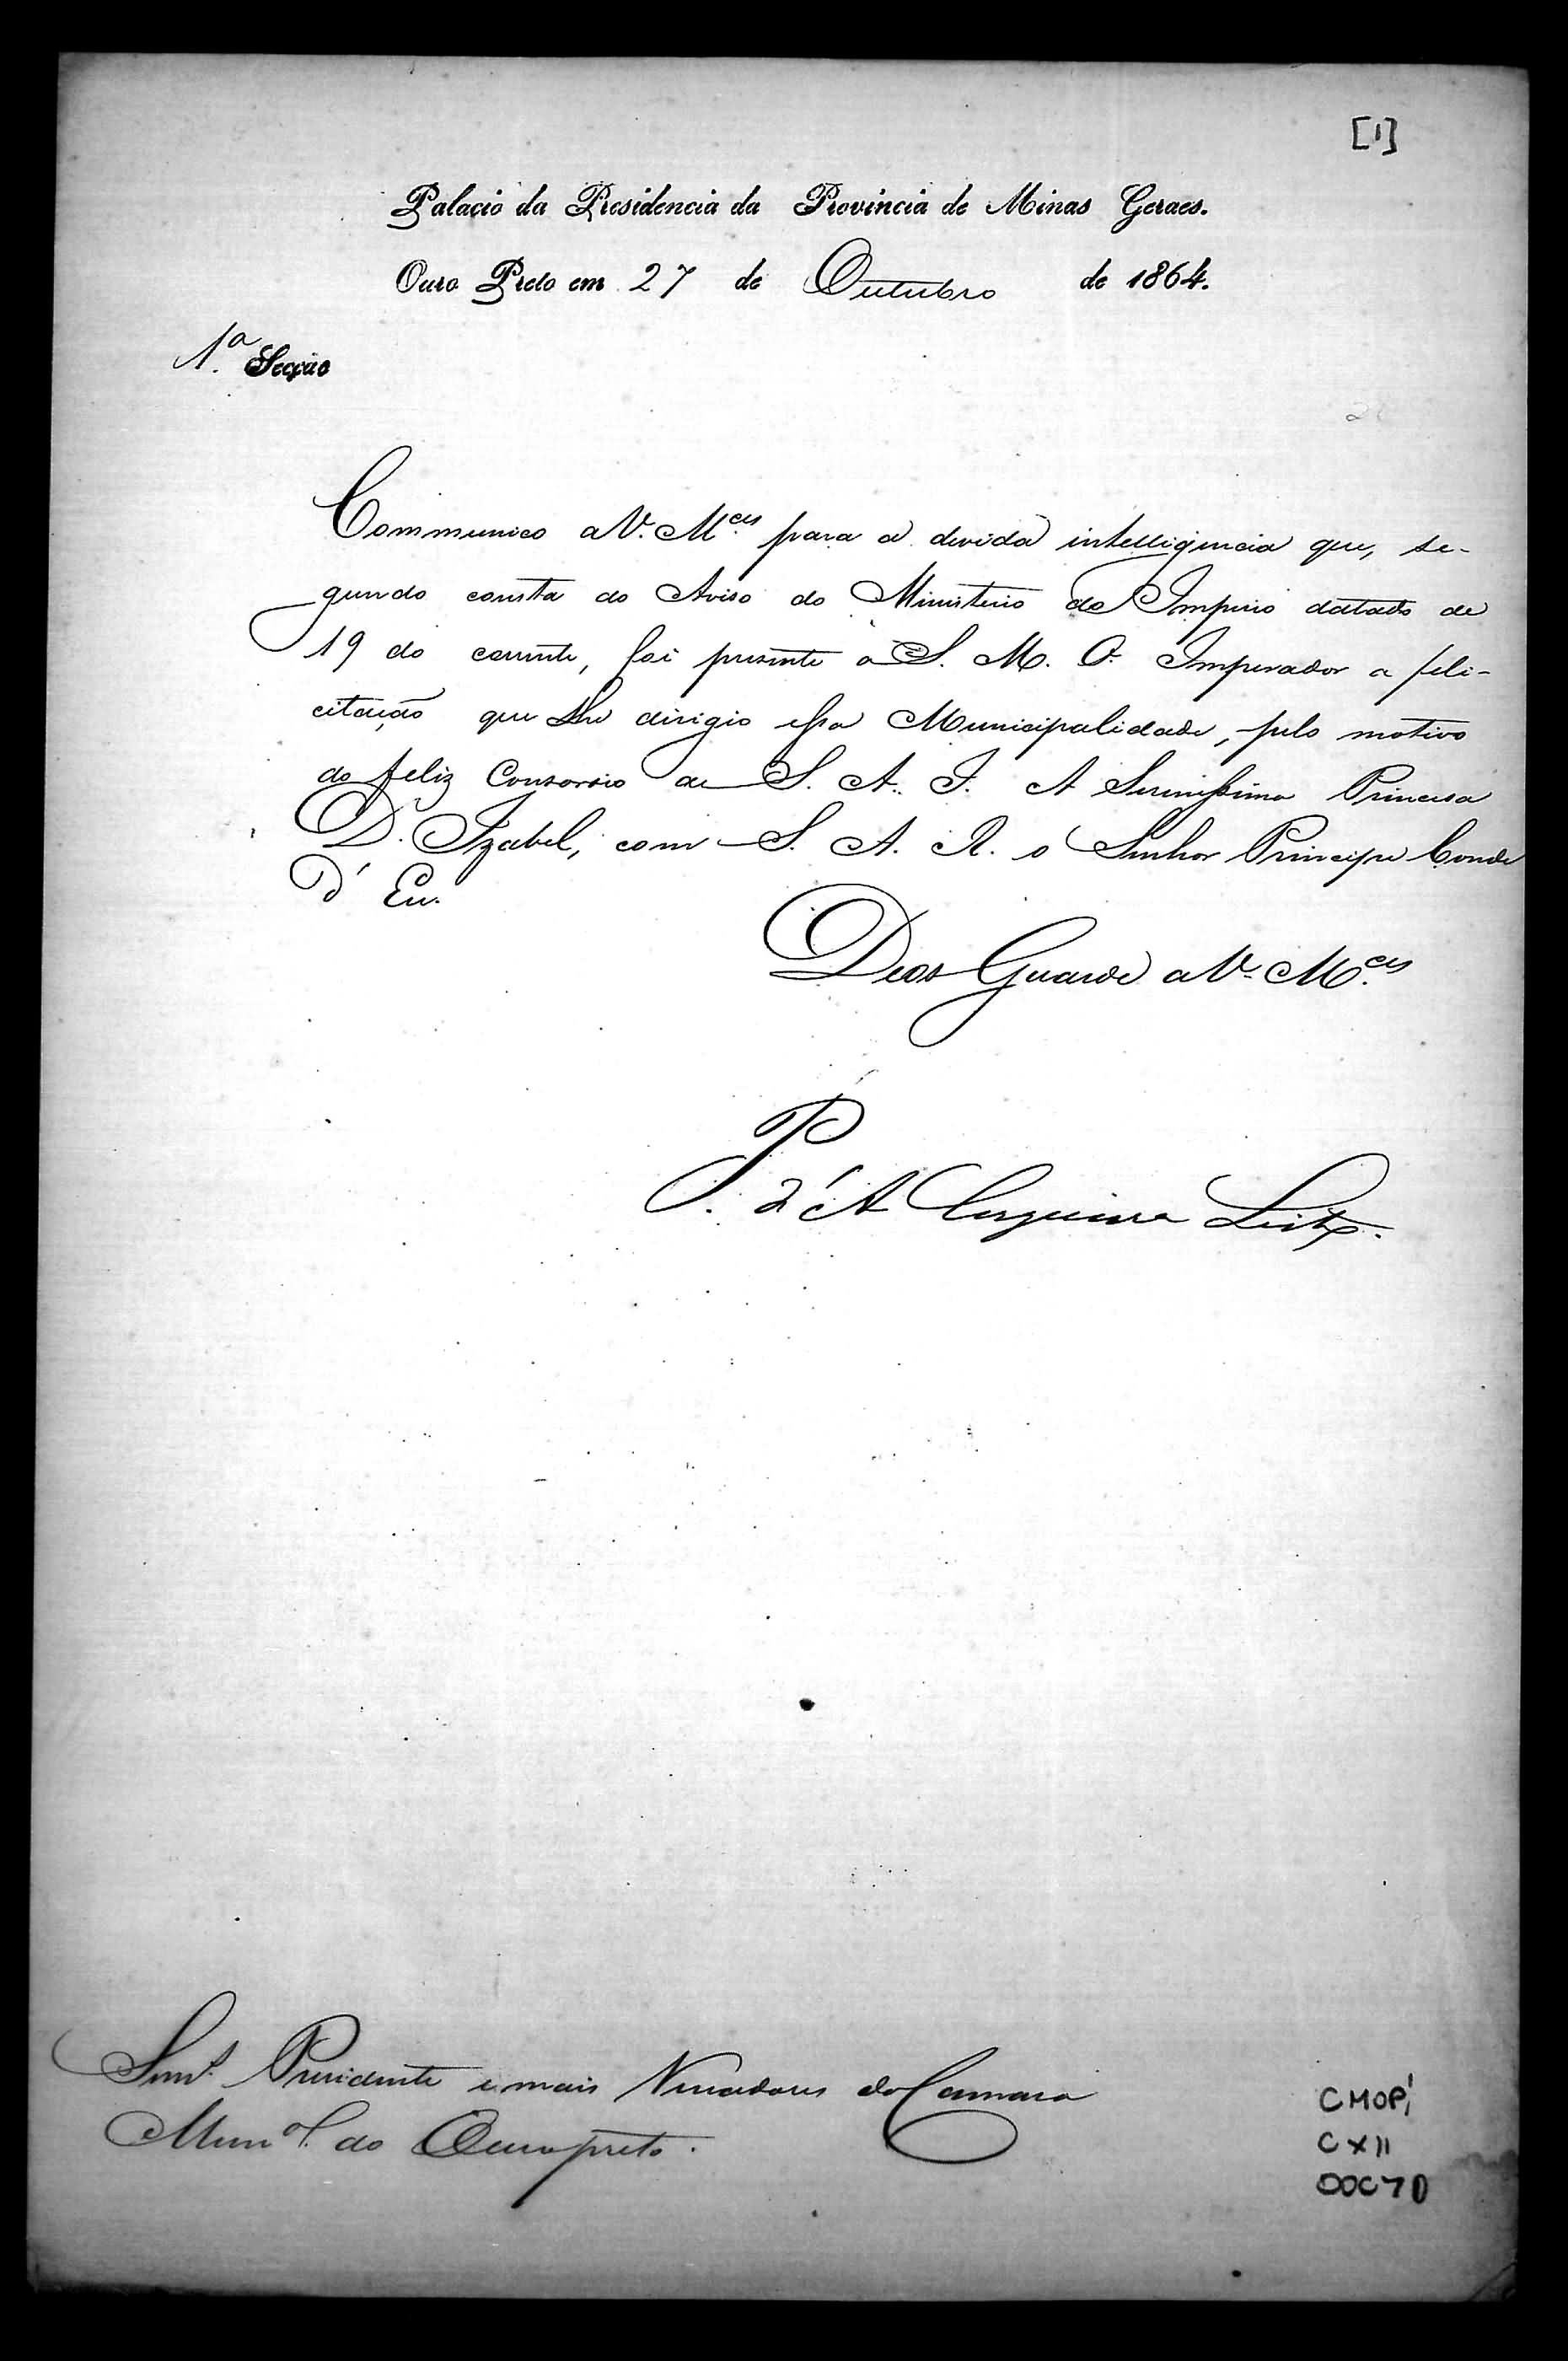 [1]
Palacio da Presidencia da Provincia de Minas Geraes.
Ouro Preto em 27 de Outubro de 1864.
1.ª Secção
Communico a V. M.ces para a devida intelligencia que, se-
gundo consta do Aviso do Ministerio do Imperio datado de
19 do corrente, foi presente a S. M. O Imperador a feli-
citação que Lhe dirigio essa Municipalidade, pelo motivo
do feliz Consorcio de S. A. I. A Serenissima Princesa
D. Izabel, com S. A. R. o Senhor Principe Conde
D' Eu.
Deos Guarde a V. M.ces
P. d'A Cerqueira Leite.
Snr.s Presidente e mais Vereadores da Camara
Mun.al do Ouro preto.
CMOP,
CX11
DOC70